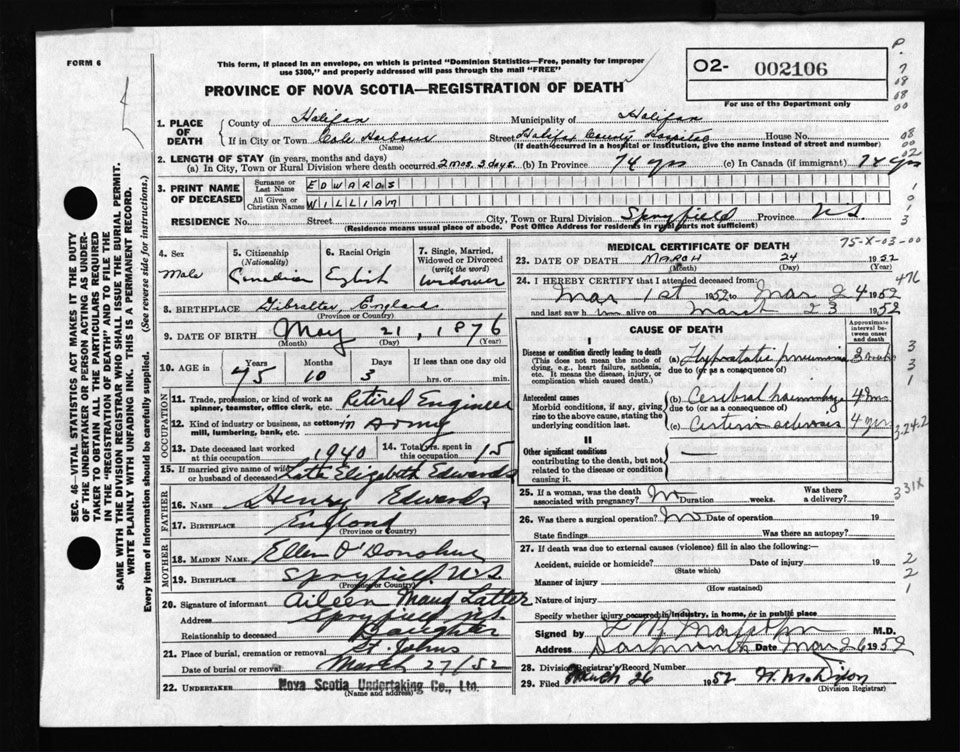 FORM 6
This form, if placed in an envelope, on which is printed "Dominion Statistics—Free, penalty for improper
use $300," and properly addressed will pass through the mail "FREE"
O2- 002106
For use of the Department only
PROVINCE OF NOVA SCOTIA—REGISTRATION OF DEATH
1. PLACE OF DEATH
County of Halifax Municipality of Halifax
If in City or Town Cole Harbour Street Halifax County Hospital House No.
(Name) (If death occurred in a hospital or institution, give the name instead of street and number)
2. LENGTH OF STAY (in years, months and days)
(a) In City, Town or Rural Division where death occurred 2 mos. 3 days. (b) In Province 74 yrs (c) In Canada (if immigrant) 74 yrs
3. PRINT NAME OF DECEASED
Surname or Last Name EDWARDS
All Given or Christian Names WILLIAM
RESIDENCE No. Street City, Town or Rural Division Spryfield Province NS
(Residence means usual place of abode. Post Office Address for residents in rural parts not sufficient)
4. Sex Male
5. Citizenship (Nationality) Canadian
6. Racial Origin English
7. Single, Married, Widowed or Divorced (write the word) Widower
8. BIRTHPLACE Gibralter, England
(Province or Country)
9. DATE OF BIRTH May 21, 1876
(Month) (Day) (Year)
10. AGE in Years 75 Months 10 Days 3 If less than one day old
hrs. or min.
OCCUPATION
11. Trade, profession, or kind of work as
spinner, teamster, office clerk, etc. Retired Engineer
12. Kind of industry or business, as cotton
mill, lumbering, bank, etc. in Army
13. Date deceased last worked
at this occupation 1940
14. Total yrs. spent in
this occupation 15
15. If married give name of wife
or husband of deceased Late Elizabeth Edwards
FATHER
16. NAME Henry Edwards
17. BIRTHPLACE England
(Province or Country)
MOTHER
18. MAIDEN NAME Ellen O'Donohue
19. BIRTHPLACE Spryfield. N.S
(Province or Country)
20. Signature of informant Aileen Maud Latter
Address Spryfield N.S.
Relationship to deceased Daughter
21. Place of burial, cremation or removal St. Johns
Date of burial or removal March 27/52
22. UNDERTAKER Nova Scotia Undertaking Co., Ltd.
(Name and address)
MEDICAL CERTIFICATE OF DEATH
75-X-03-00
23. DATE OF DEATH MARCH 24 1952
(Month) (Day) (Year)
24. I HEREBY CERTIFY that I attended deceased from:
Mar 1st 1952 to Mar 24 1952
and last saw him alive on March 23 1952
476
CAUSE OF DEATH
Approximate interval between onset and death
I
Disease or condition directly leading to death
(This does not mean the mode of
dying, e.g., heart failure, asthenia,
etc. It means the disease, injury, or
complication which caused death.)
(a) Hypostatic pneumonia 3 weeks
due to (or as a consequence of)
Antecedent causes
Morbid conditions, if any, giving
rise to the above cause, stating the
underlying condition last.
(b) Cerebral haemorrhage
due to (or as a consequence of)
(c) 4 yrs
II
Other significant conditions
contributing to the death, but not
related to the disease or condition
causing it.
3-24-2
331X
25. If a woman, was the death
associated with pregnancy? Duration weeks. Was there
a delivery?
26. Was there a surgical operation? No Date of operation 19
State findings Was there an autopsy?
27. If death was due to external causes (violence) fill in also the following:—
Accident, suicide or homicide? Date of injury 19
(State which)
Manner of injury
(How sustained)
Nature of injury
Specify whether injury occurred in industry, in home, or in public place
Signed by M.D.
Address Dartmouth Date Mar 26 1952
28. Division Registrar's Record Number
29. Filed March 26 1952
(Division Registrar)
SEC. 46—VITAL STATISTICS ACT MAKES IT THE DUTY
OF THE UNDERTAKER OR PERSON ACTING AS UNDER-
TAKER TO OBTAIN ALL THE PARTICULARS REQUIRED
IN THE "REGISTRATION OF DEATH" AND TO FILE THE
SAME WITH THE DIVISION REGISTRAR WHO SHALL ISSUE THE BURIAL PERMIT.
WRITE PLAINLY WITH UNFADING INK. THIS IS A PERMANENT RECORD.
Every item of Information should be carefully supplied. (See reverse side for instructions.)